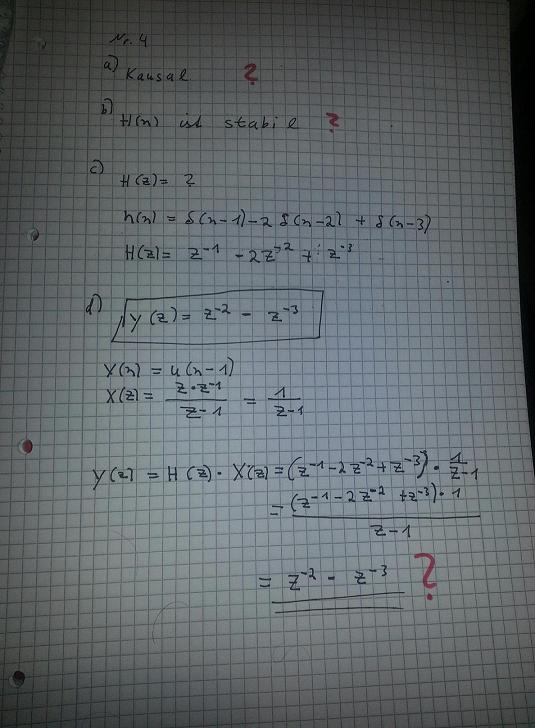 Nr. 4
a) Kausal ?
b) H(n) ist stabil ?
c) H(z) = ?
h(n) = δ(n-1) - 2 δ(n-2) + δ(n-3)
H(z) = z⁻¹ - 2z⁻² + z⁻³
d) Y(z) = z⁻² - z⁻³
X(n) = u(n-1)
X(z) = z·z⁻¹ / z-1 = 1 / z-1
Y(z) = H(z) · X(z) = (z⁻¹ - 2z⁻² + z⁻³) · 1 / z-1
= (z⁻¹ - 2z⁻² + z⁻³) · 1 / z-1
= z⁻² - z⁻³ ?